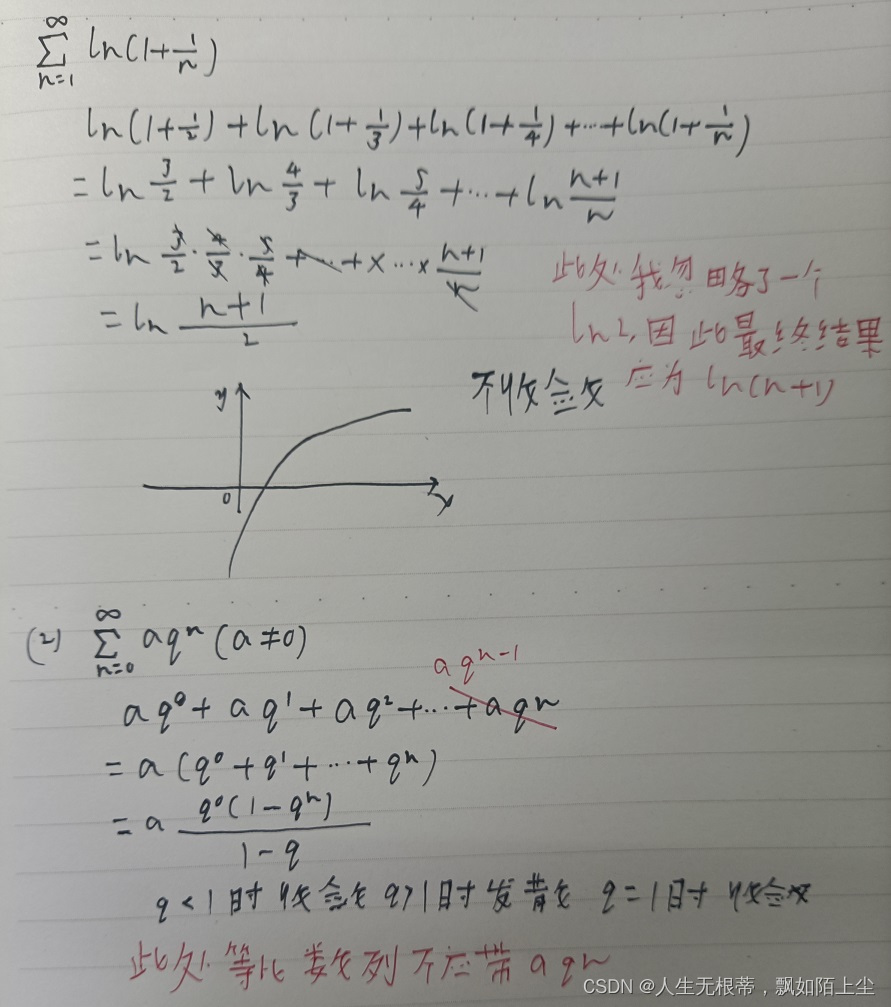 ∑_{n=1}^{∞} ln(1+1/n)
ln(1+1/2)+ln(1+1/3)+ln(1+1/4)+…+ln(1+1/n)
=ln 3/2 + ln 4/3 + ln 5/4 +…+ln (n+1)/n
=ln 3/2 · 4/3 · 5/4 +… +×…× (n+1)/n
=ln (n+1)/2
此处我忽略了一个
ln2,因此最终结果
应为 ln(n+1)
不收敛
y
0
x
(2) ∑_{n=0}^{∞} aqⁿ (a≠0)
aqⁿ⁻¹
aq⁰+aq¹+aq²+…+aqⁿ
=a(q⁰+q¹+…+qⁿ)
=a q⁰(1-qⁿ)/(1-q)
q<1时收敛 q>1时发散 q=1时收敛
此处等比数列不应带aqⁿ
CSDN @人生无根蒂，飘如陌上尘